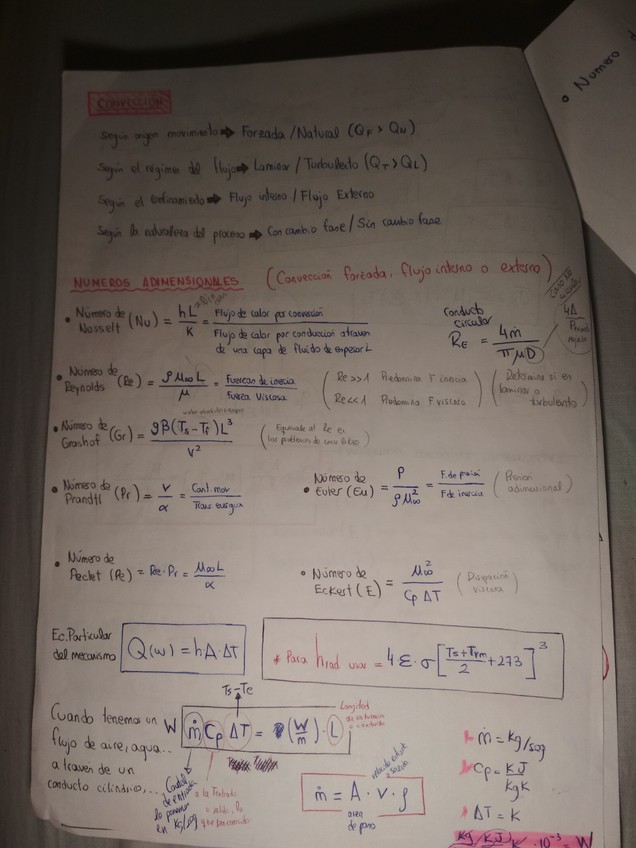 Numero d
CONVECCIÓN
Según origen movimiento → Forzada / Natural (QF > QN)
Según el régimen del flujo → Laminar / Turbulento (QT > QL)
Según el confinamiento → Flujo interno / Flujo Externo
Según la naturaleza del proceso → Con cambio fase / Sin cambio fase
NUMEROS ADIMENSIONALES (Convección forzada, flujo interno o externo)
• Número de Nosselt (Nu) = hL/K = Flujo de calor por convección / Flujo de calor por conducción a traves de una capa de fluido de espesor L
conducto circular
RE = 4ṁ/πμD
4A
• Número de Reynolds (Re) = ρ μ∞ L/μ = Fuerzas de inercia / Fuerza Viscosa
(Re>>1 Predomina F. inercia
Re<<1 Predomina F. viscosa)
(Determina si es laminar o turbulento)
• Número de Grashof (Gr) = gβ(Ts-Tf)L³/v² (Equivale al Re en
• Número de Prandtl (Pr) = v/α = Cant. mov / Trans. energia
• Número de Euler (Eu) = P/ρμ∞² = F. de presión / F de inercia (Presion adimensional)
• Número de Peclet (Pe) = Re·Pr = μ∞L/α
• Número de Eckest (E) = μ∞²/Cp ΔT (Disipación viscosa)
Ec. Particular del mecanismo Q(w) = hA·ΔT
* Para hrad usar = 4·ε·σ[(Ts+Trm)/2 + 273]³
Ts-Te
Longitud
Cuando tenemos un flujo de aire, agua... a traves de un conducto cilindrico,...
W ṁ Cp ΔT = (W/m) · L
Caudal de entrada lo ponemos en kg/sog
ṁ = A · v · ρ
area de paso
ṁ = Kg/sog
Cp = KJ/KgK
ΔT = K
Kg/ KJ/ K · 10⁻³ = W